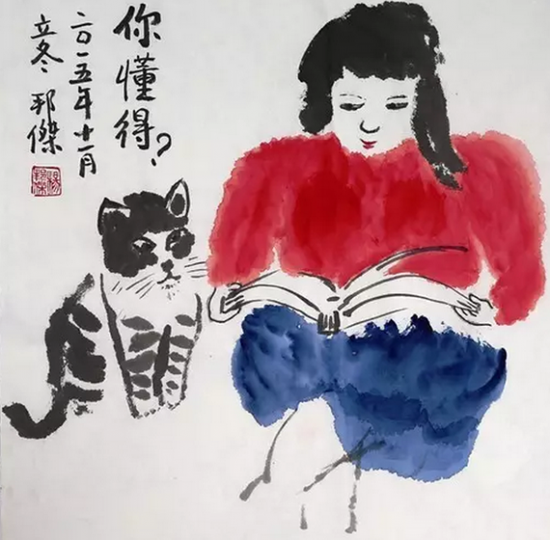 你懂得?
二〇一五年十一月
立冬 邦傑